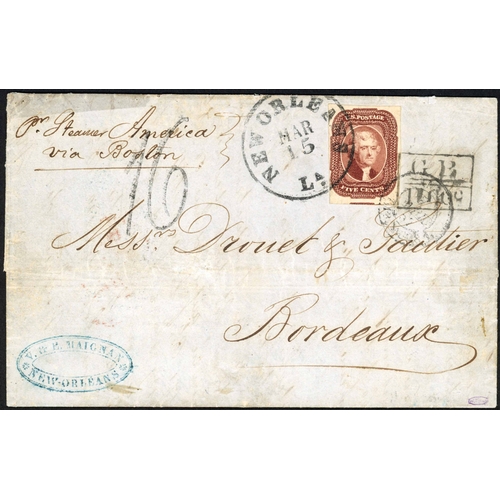 pr. Steamer America
via Boston
16
NEW ORLEANS
MAR
15
LA
U.S. POSTAGE
FIVE CENTS
G B
1F60c
Messrs Drouet & Gautier
Bordeaux
V. & P. MAIGNAN
NEW-ORLEANS